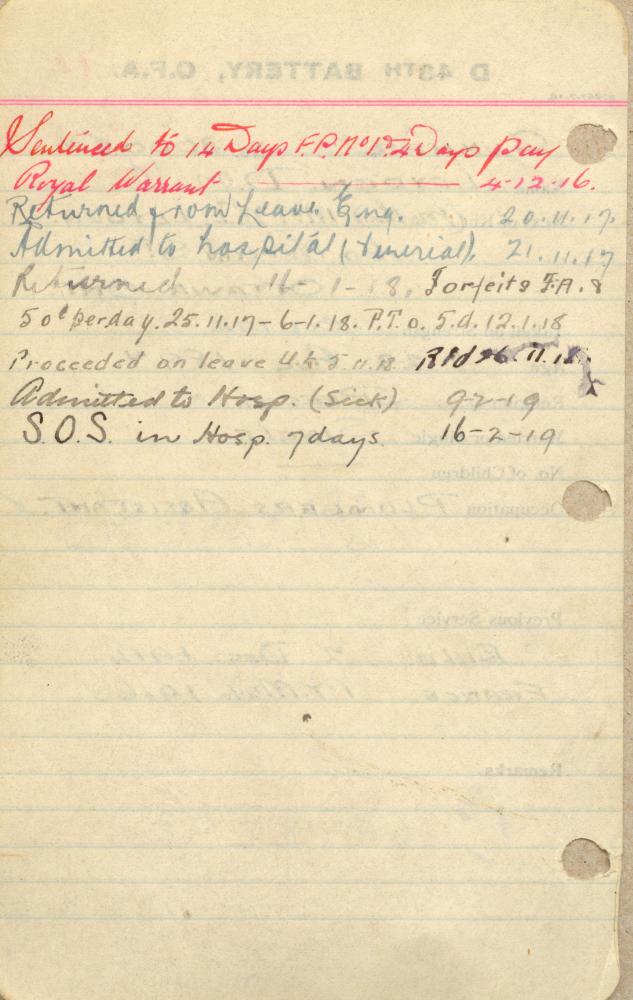 Sentenced to 14 Days F.P. No 1. 4 Days pay
Royal Warrant 4-12-16.
Returned from Leave Eng. 20.11.17.
Admitted to hospital (Venerial). 21.11.17
Returned 1-18. Forfeits F.A. &
50¢ per day. 25.11.17-6-1.18. P.T.O. 5.d. 12.1.18
Proceeded on leave U.K. 5.11.18 Rtd 26.11.18.
Admitted to Hosp. (Sick) 9-2-19
S.O.S. in Hosp. 7days 16-2-19